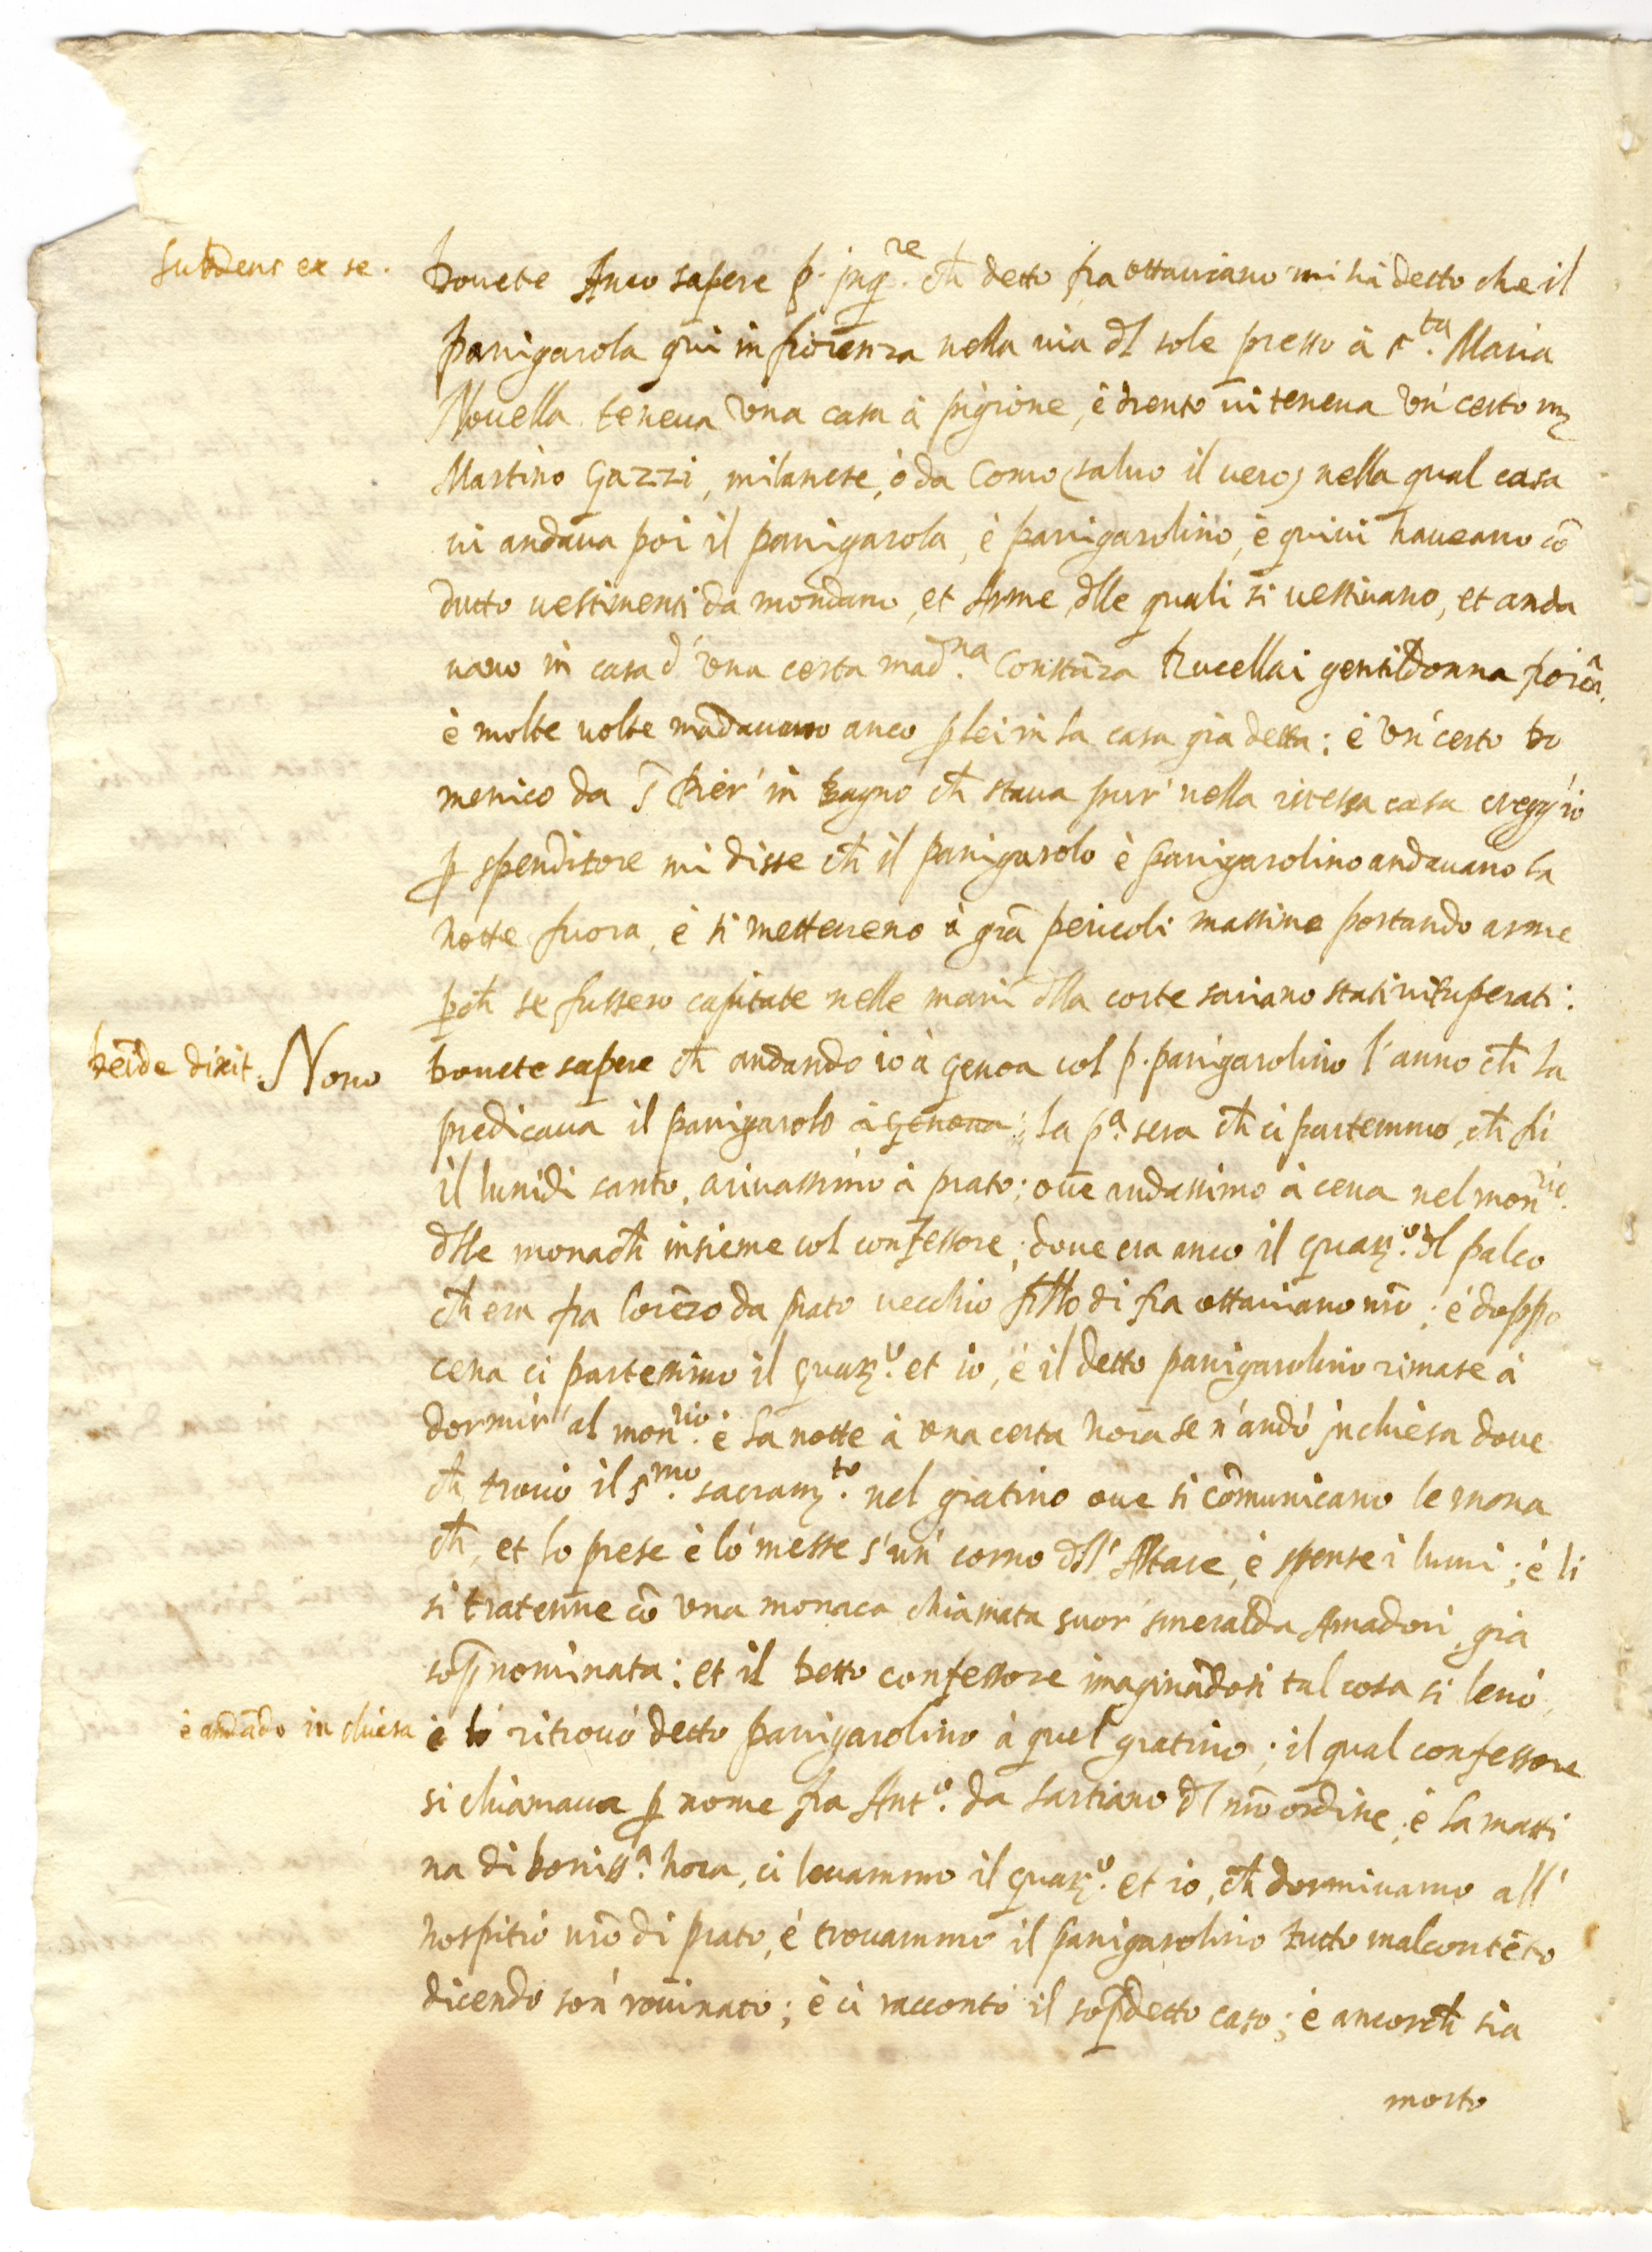 Subdens ex se.
Dovete Anco sapere p. inq.re ch̃ detto fra ottaviano mi hà detto che il
panigarola qui in fiorenza nella via dl̃ sole presso à s.ta Maria
Novella teneva una casa à pigione, è drento vi teneva un' certo mʒ
Martino Gazzi, milanese, ò da Como (salvo il vero) nella qual casa
vi andava poi il panigarola, è panigarolino, è quivi haveano cõ
dutto vestimenti da mondano, et Arme, dl̃le quali si vestivano, et anda
vano in casa d'una certa mad.na Constãza Rucellai gentildonna fiorã.
è molte volte mãdavano anco p̱ lei in la casa già detta: è un' certo Do
menico da S̃ Pier' in Bagno ch̃ stava pur' nella istessa casa cregg'io
p̱ spenditore mi disse ch̃ il panigarolo è panigarolino andavano la
notte fuora, è si mettereno à grã pericoli massime portando arme
p̱ch̃ se fussero capitate nelle mani dl̃la corte sariano stati vituperati:
Deĩde dixit. Nono
Dovete sapere ch̃ andando io à genoa col p. panigarolino l'anno ch̃ la
predicava il panigarolo à genova; la p.a sera ch̃ ci partemmo, ch̃ fù
il lunidi santo, arivassimo à prato; ove andassimo à cena nel mon.rio
dl̃le monach̃ insieme col confessore; dove era anco il guarʒ.o dl̃ palco
ch̃ era fra lorẽzo da prato vecchio frl̃lo di fra ottaviano nr̃o; è doppo
cena ci partessimo il guarʒ.o et io, è il detto panigarolino rimase à
dormir' al mon.rio è la notte à una certa hora se n'andò in chiesa dove
ch̃ trovò il s.mo sacramʒ.to nel gratino ove si cõmunicano le mona
ch̃, et lo prese è lo messe s'un' corno dl̃l' Altare, è spense i lumi; è li
si tratenne cõ una monaca chiamata suor' smeralda Amadori, già
sop̱nominata: et il detto confessore imaginãdosi tal cosa si levò,
è andãdo in chiesa
è lo ritrovò detto panigarolino à quel gratino; il qual confessore
si chiamava p̱ nome fra Ant.o da sartiano dl̃ nr̃o ordine; è la matti
na di boniss.a hora, ci levammo il guarʒ.o et io, ch̃ dormivamo all'
hospitio nr̃o di prato, è trovammo il panigarolino tutto malcontẽto
dicendo son' rovinato; è ci raccontò il sop̱detto caso; è ancorch̃ sia
morto